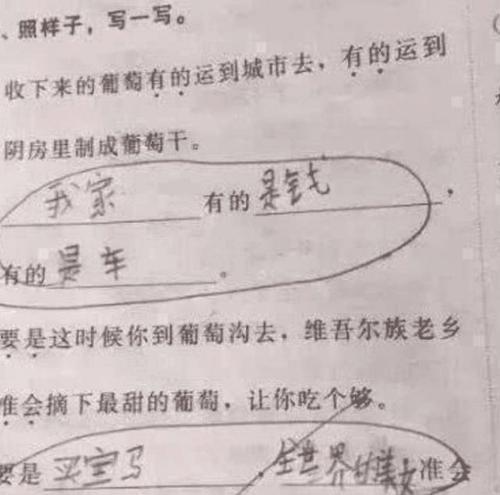 、照样子，写一写。
收下来的葡萄有的运到城市去，有的运到
阴房里制成葡萄干。
我家有的是钱，
有的是车。
要是这时候你到葡萄沟去，维吾尔族老乡
准会摘下最甜的葡萄，让你吃个够。
要是买宝马，全世界的美女准会